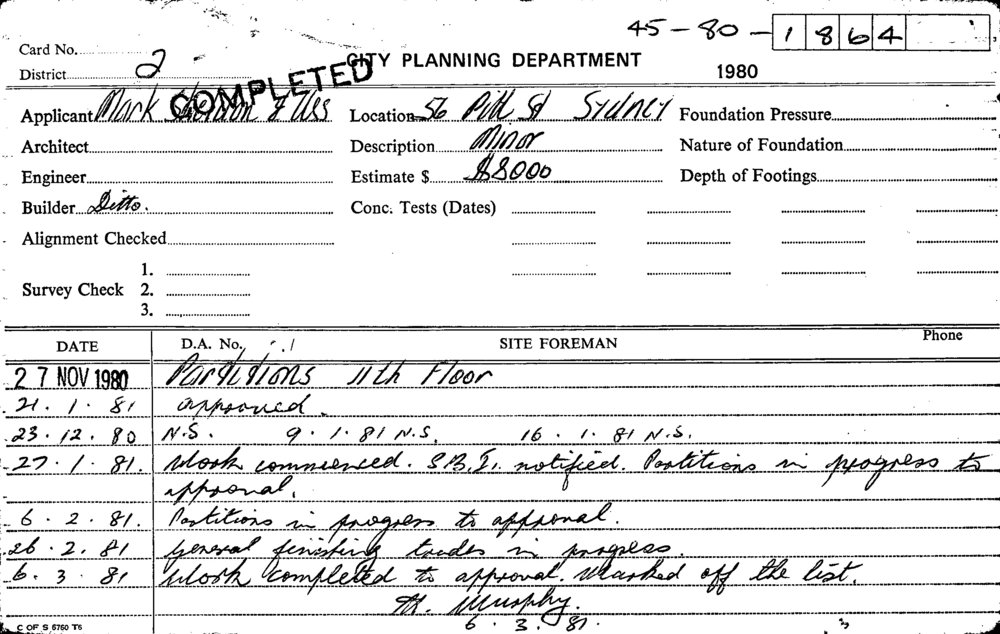 45 - 80 - 1864
Card No.
District 2
COMPLETED
CITY PLANNING DEPARTMENT
1980
Applicant Mark & Ass Location 56 Pitt St Sydney Foundation Pressure
Architect Description Minor Nature of Foundation
Engineer Estimate $ $8000 Depth of Footings
Builder Ditto. Conc. Tests (Dates)
Alignment Checked
1.
Survey Check 2.
3.
DATE D.A. No. SITE FOREMAN Phone
27 NOV 1980 Partitions 11th Floor
21. 1. 81 approved.
23. 12. 80 N.S. 9. 1. 81 N.S. 16. 1. 81 N.S.
27. 1. 81. Work commenced. S.B.I. notified. Partitions in progress to
approval.
6. 2. 81. Partitions in progress to approval.
26. 2. 81 General finishing trades in progress.
6. 3. 81 Work completed to approval. Marked off the list.
Murphy.
6. 3. 81.
C OF S 6760 T6